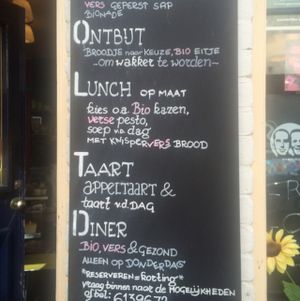 VERS GEPERST SAP
BIONADE
ONTBIJT
BROODJE naar KEUZE, BIO EITJE
~om wakker te worden~
LUNCH OP MAAT
kies o.a. Bio kazen,
verse pesto,
soep v.d. dag
MET KNISPERVERS BROOD
TAART
APPELTAART &
taart v.d. DAG
DINER
BIO, VERS & GEZOND
ALLEEN OP DONDERDAG
*RESERVEREN = korting*
vraag binnen naar de MOGELIJKHEDEN
of bel: 6139672